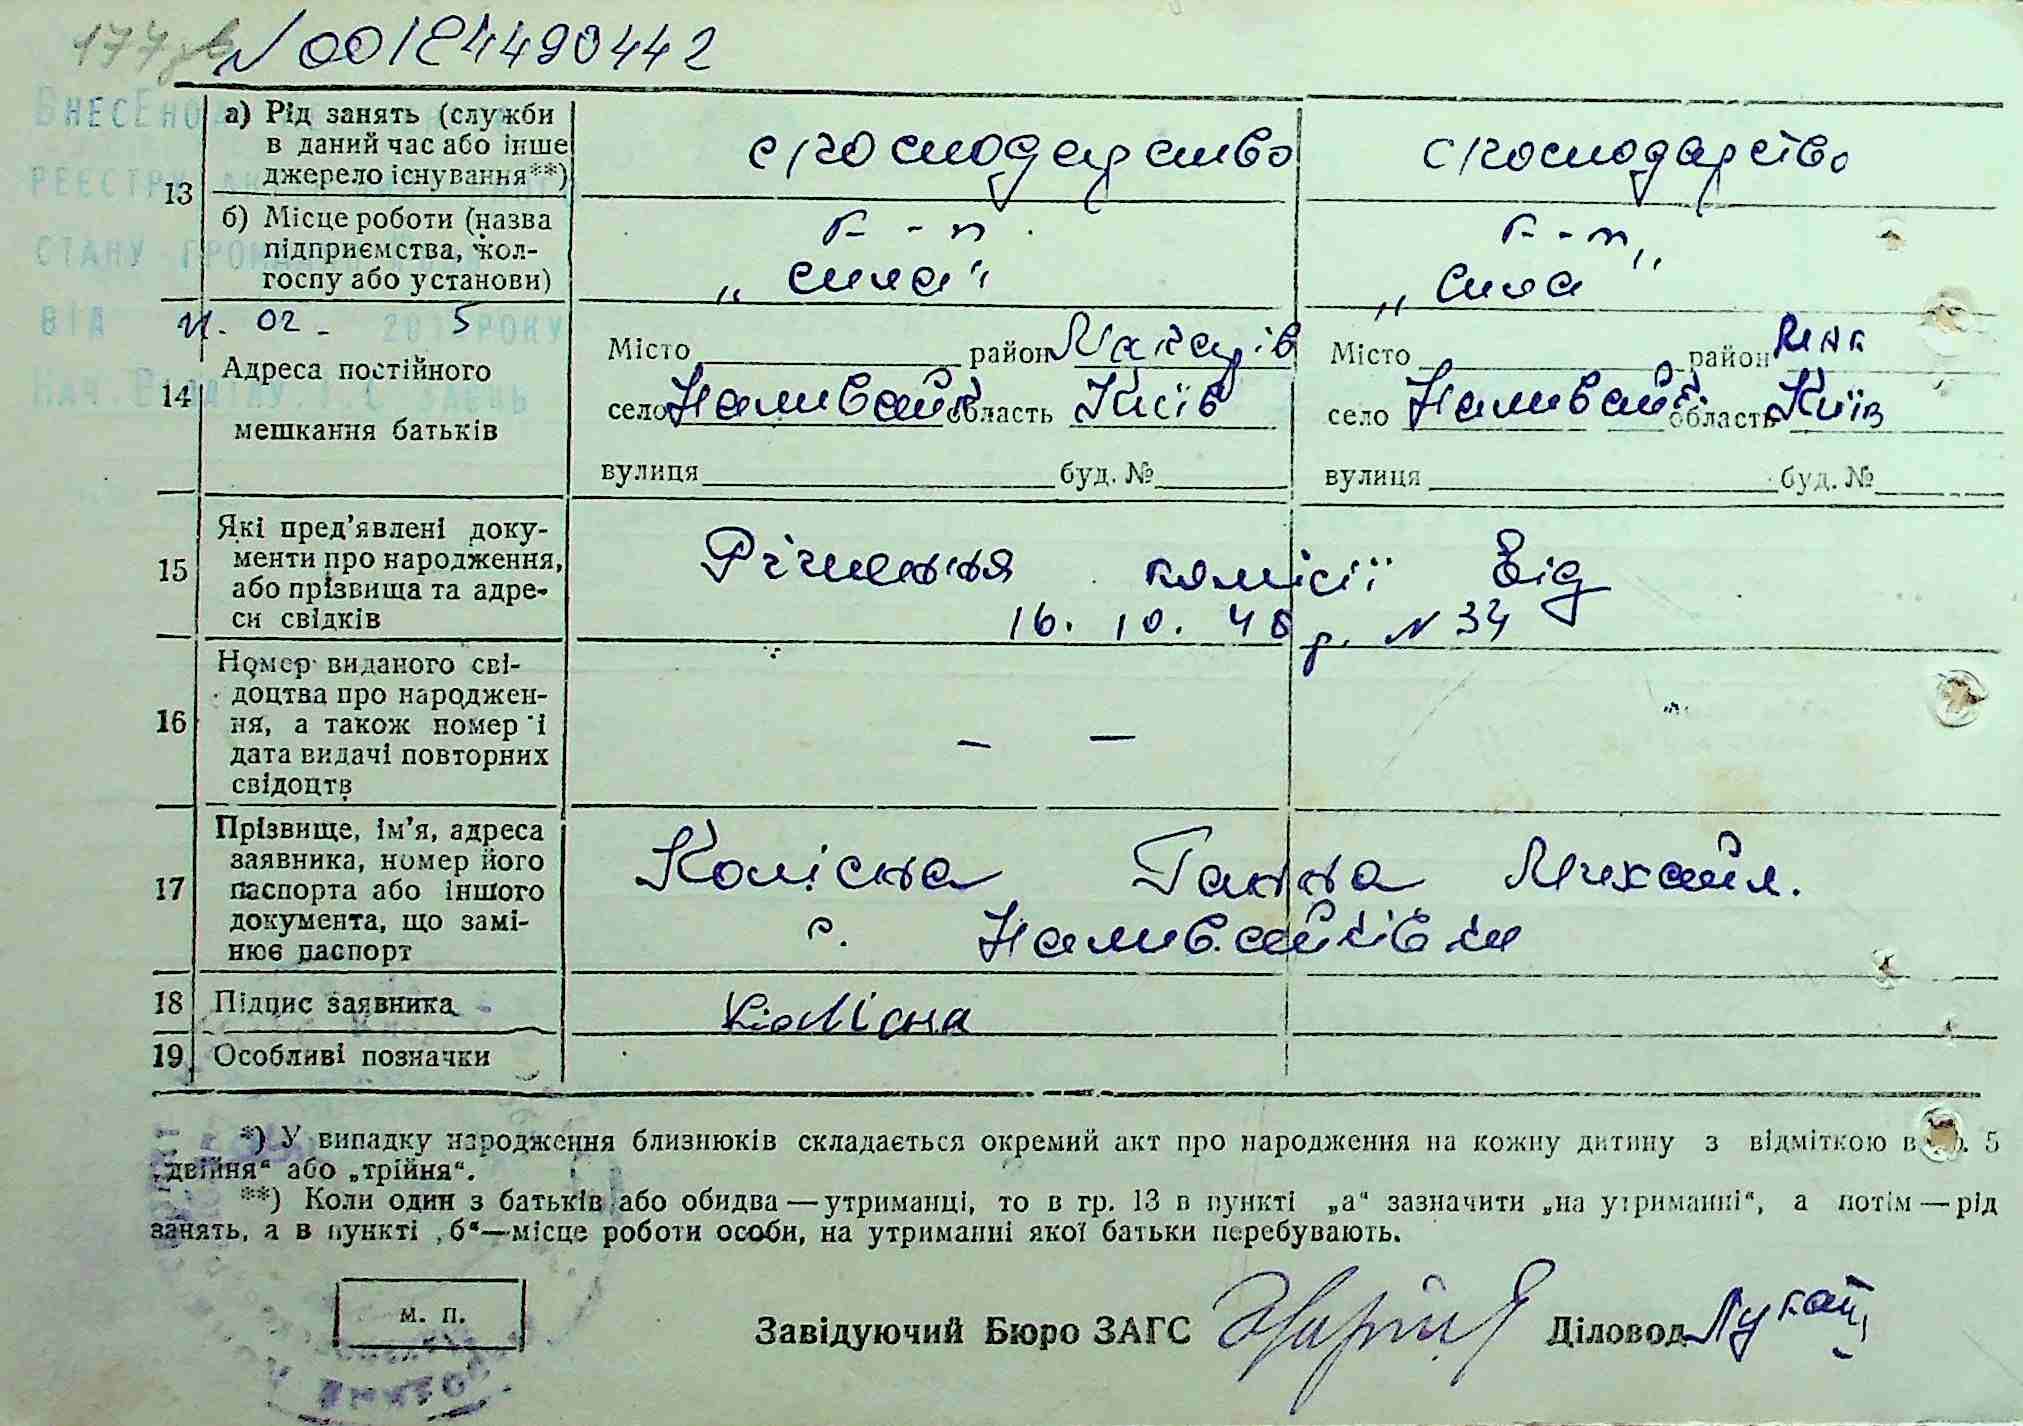 N 00124490442
ВнесЕно
РЕЄСТРУ
СТАНУ
ВІД 21. 02 - 2015 РОКУ
13
а) Рід занять (служби
в даний час або інше
джерело існування**)
с/господарство
с/господарство
б) Місце роботи (назва
підприємства, кол-
госпу або установи)
к-п
„сила"
к-п
„сила"
14
Адреса постійного
мешкання батьків
Місто район Макарів
село Наливайк область Київ
вулиця буд. №
Місто район Мак
село Наливайк область Київ
вулиця буд. №
15
Які пред’явлені доку-
менти про народження,
або прізвища та адре-
си свідків
Рішення комісії від
16. 10. 48 р. N 34
16
Номер виданого сві-
доцтва про народжен-
ня, а також номер і
дата видачі повторних
свідоцтв
— —
17
Прізвище, ім’я, адреса
заявника, номер його
паспорта або іншого
документа, що замі-
нює паспорт
Колісна Ганна Михайл.
с. Наливайківки
18
Підпис заявника
Колісна
19
Особливі позначки
*) У випадку народження близнюків складається окремий акт про народження на кожну дитину з відміткою в 5
„двійня“ або „трійня“.
**) Коли один з батьків або обидва — утриманці, то в гр. 13 в пункті „а“ зазначити „на утриманні“, а потім — рід
занять, а в пункті „б“ — місце роботи особи, на утриманні якої батьки перебувають.
м. п.
Завідуючий Бюро ЗАГС
Діловод